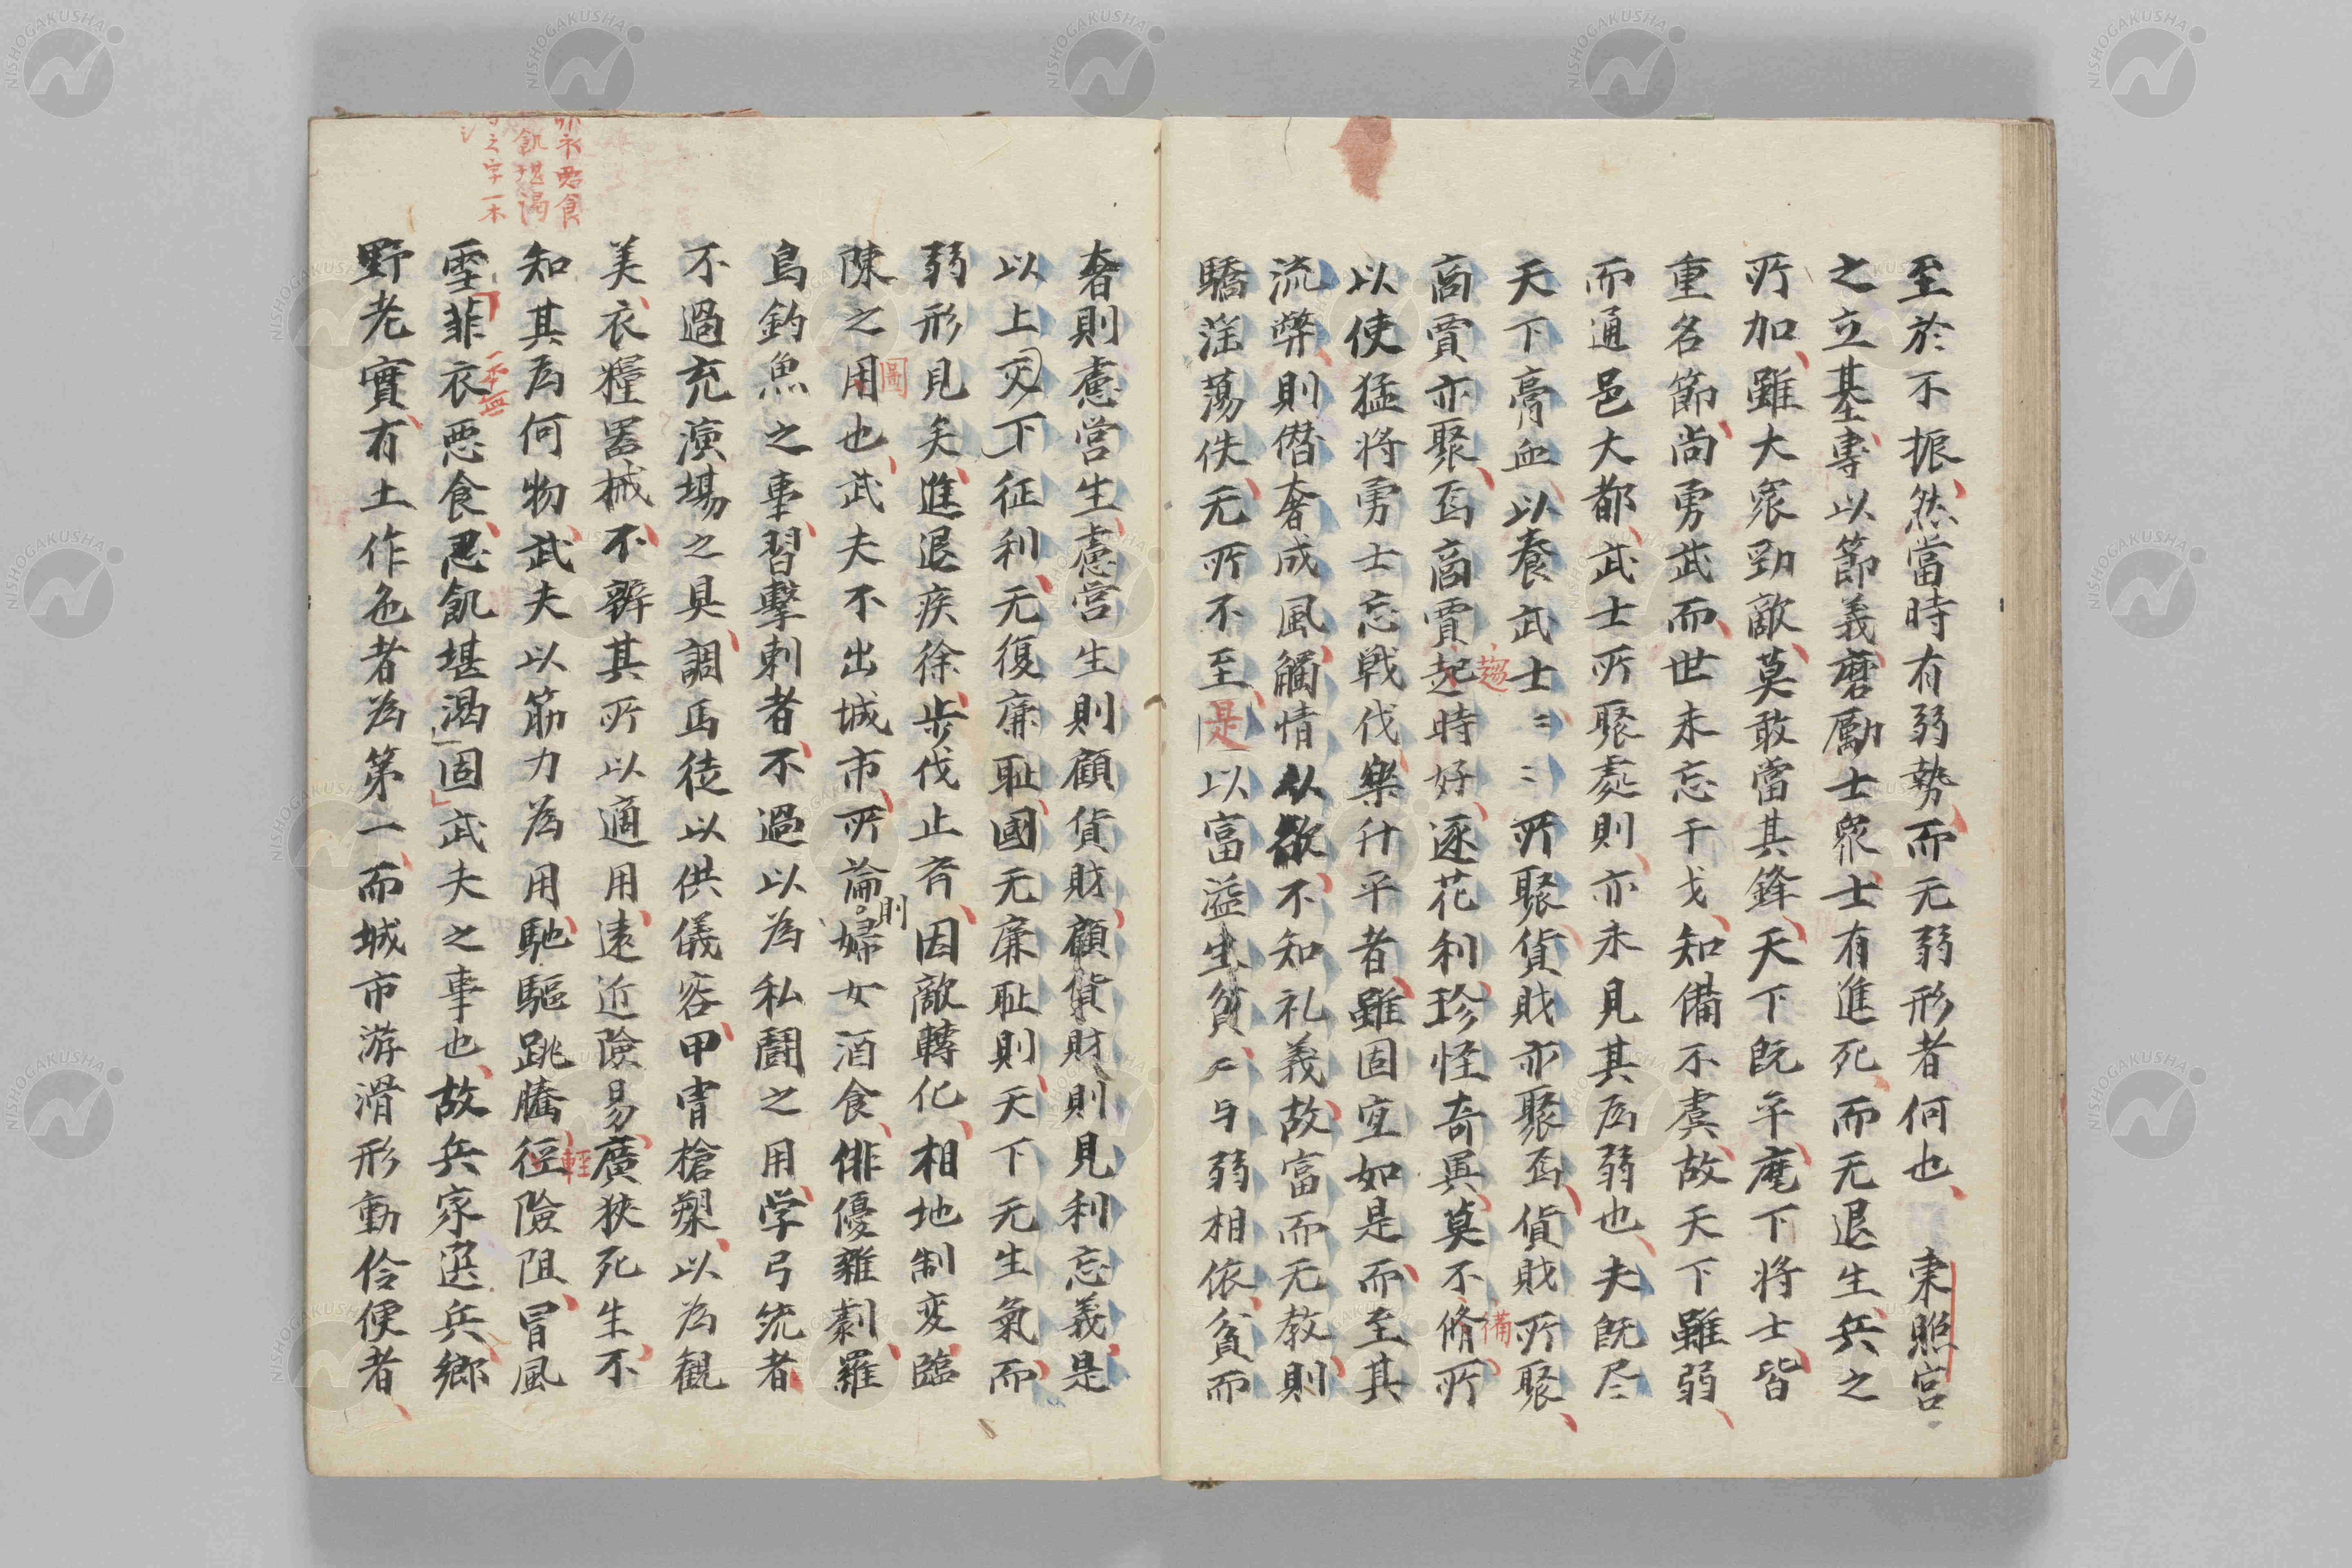 至於不振然當時有弱勢而无弱形者何也 東照宮
之立基專以節義磨勵士衆士有進死而无退生兵之
所加雖大衆勁敵莫敢當其鋒天下既平麾下將士皆
重名節尚勇武而世未忘干戈知備不虞故天下雖弱
而通邑大都武士所聚處則亦未見其為弱也夫既尽
天下膏血以養武士〻〻所聚貨財亦聚焉貨財所聚
商賈亦聚焉商賈起時好逐花利珍怪奇異莫不脩所
趨
備
以使猛将勇士忘戦伐樂升平者雖固宜如是而至其
流弊則僭奢成風觸情从欲不知礼義故富而无教則
驕淫蕩佚无所不至是以富溢生貧〻与弱相依貧而
奢則慮営生慮営生則顧貨財顧貨財則見利忘義是
以上交下征利无復廉耻國无廉耻則天下无生氣而
弱形見矣進退疾徐歩伐止齊因敵轉化相地制変臨
陳之用也武夫不出城市所論婦女酒食俳優雜劇羅
圖
則
鳥釣魚之事習擊刺者不過以為私鬪之用学弓銃者
不過充演場之具調馬徒以供儀容甲冑槍槊以為観
美衣糧器械不辨其所以適用遠近險易廣狹死生不
知其為何物武夫以筋力為用馳驅跳騰徑險阻冒風
輕
雪菲衣惡食忍飢堪渇固武夫之事也故兵家選兵郷
一本無
飢堪渇
之字一本
野老實有土作色者為第一而城市游滑形動伶便者